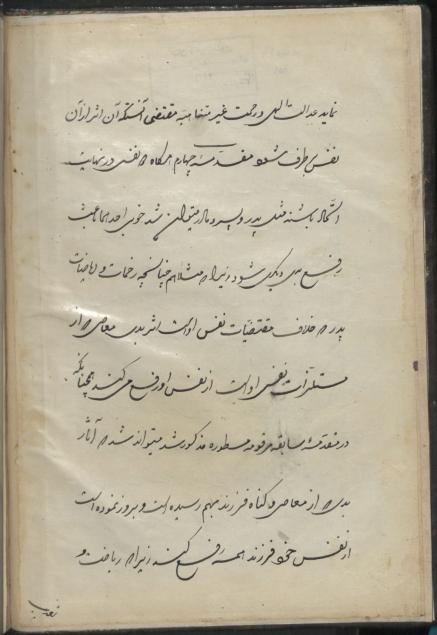 نماید عدالت الهی و رحمت غیر متناهیه مقتضی آنستکه آن اثر از آن
نفس برطرف شود مقدمه چهارم هرگاه دو نفس در نهایت
اتحاد باشند مثل پدر و پسر و مادر میتواند شد خوبی احدهما باعث
رفع بدی دیگری شود زیرا که مثلا همچنانچه زحمات و ریاضیات
پدر که خلاف مقتضیات نفس اوست اثر بدی معاصی که از
مستلزمات نفس اوست از نفس او رفع می کند همچنانکه
در مقدمه سابقه مرقومه مسطوره مذکور شد میتواند شد که آثار
بدی که از معاصی و گناه فرزند بهم رسیده است و بروز نموده است
از نفس خود فرزند همه رفع کند زیرا که ریاضت و